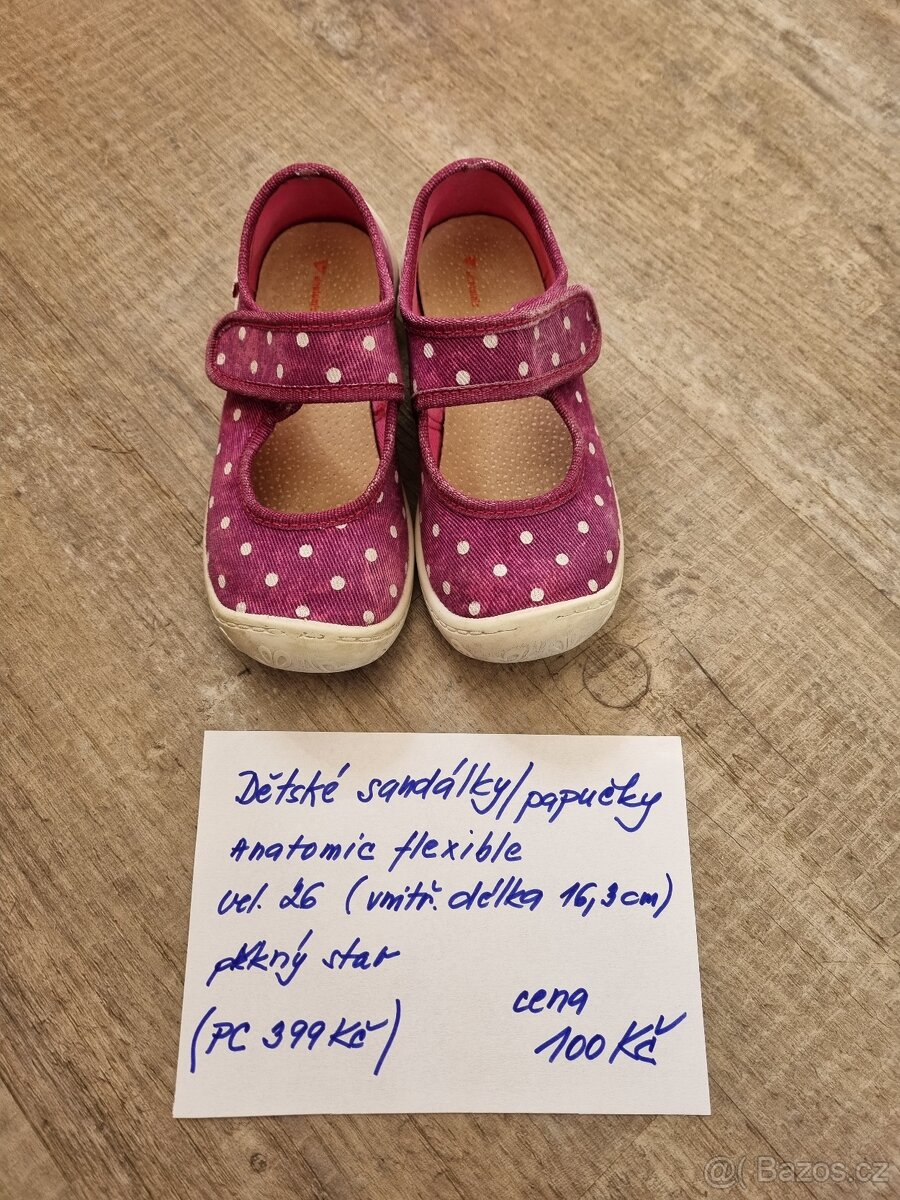 Dětské sandálky/papučky
Anatomic flexible
vel. 26 (vnitř. délka 16,3cm)
pěkný stav
(PC 399Kč)
cena
100Kč
@( Bazos.cz